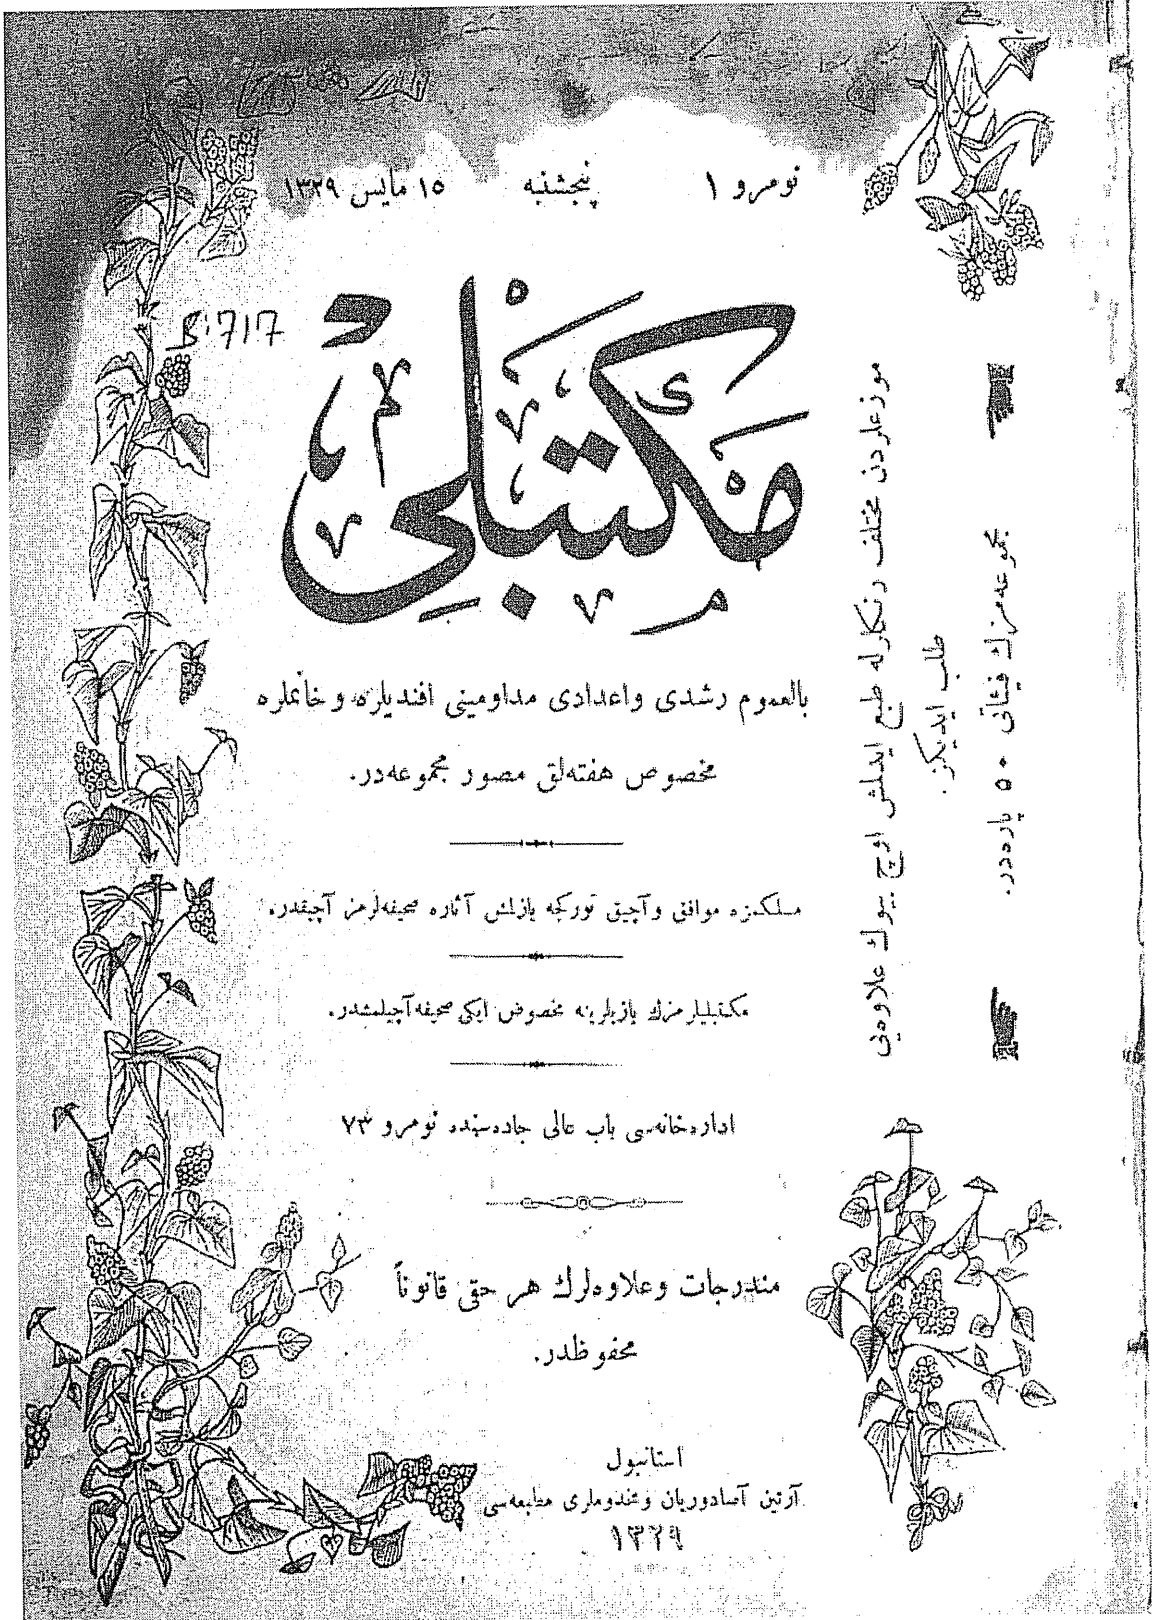 نومرو ١ پنجشنبه ١٥ مايس ١٣٢٩
B:717
مكتبلى
بالعموم رشدى واعدادى مداومينى افنديلره و خانملره
مخصوص هفته‌لق مصور مجموعه‌در.
مسلكمزه موافق و آچيق توركجه يازلمش آثاره صحيفه‌لرمز آچيقدر.
مكتبليلرمزك يازيلرينه مخصوص ايكى صحيفه آچيلمشدر.
اداره‌خانه‌سى باب عالى جاده‌سنده نومرو ٧٣
مندرجات وعلاوه‌لرك هر حقى قانوناً
محفوظدر.
استانبول
آرتين آصادوريان ومخدوملرى مطبعه‌سى
١٣٢٩
موزعلردن مختلف رنكلرله طبع ايدلمش اوچ بيوك علاوه‌يى
طلب ايديكز.
مجموعه‌مزك فيئاتى ٥٠ پاره‌در.